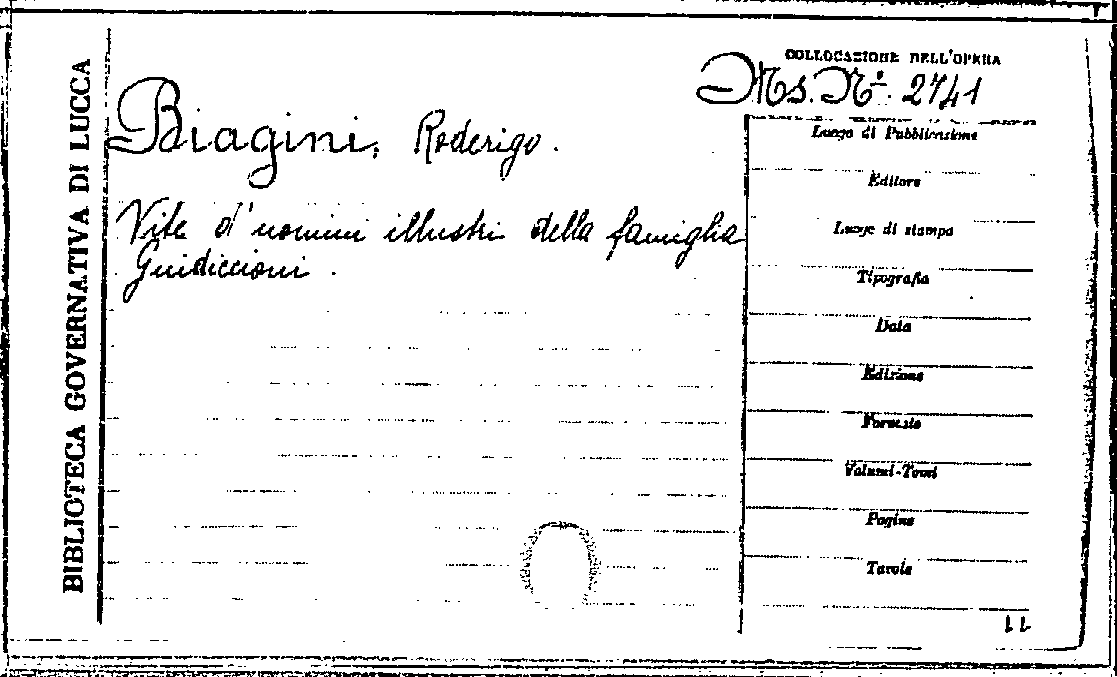 BIBLIOTECA GOVERNATIVA DI LUCCA
COLLOCAZIONE DELL'OPERA
Ms. Nº. 2741
Biagini, Roderigo.
Vite d'uomini illustri della famiglia
Guidiccioni.
Luogo di Pubblicazione
Editore
Luogo di stampa
Tipografia
Data
Edizione
Formato
Volumi-Tomi
Pagine
Tavole